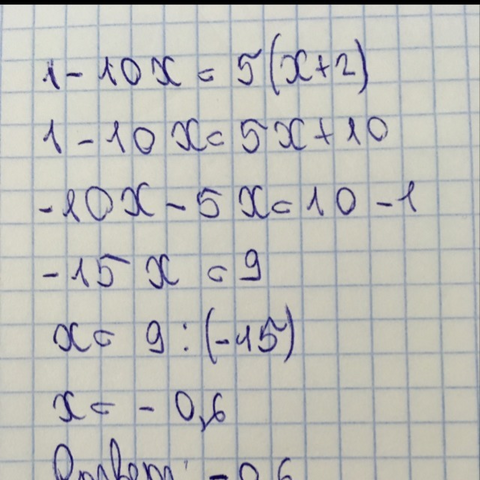 1 - 10x = 5(x+2)
1 - 10x = 5x + 10
-10x - 5x = 10 - 1
-15x = 9
x = 9 : (-15)
x = - 0,6
Ответ: -0,6